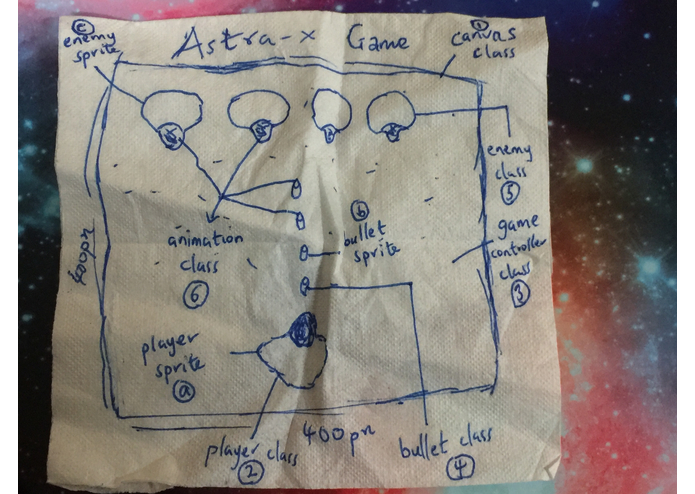 Astra-x Game
c
enemy
sprite
1
canvas
class
enemy
class
5
b
bullet
sprite
animation
class
6
game
controller
class
3
400px
player
sprite
a
400px
player class
2
bullet class
4